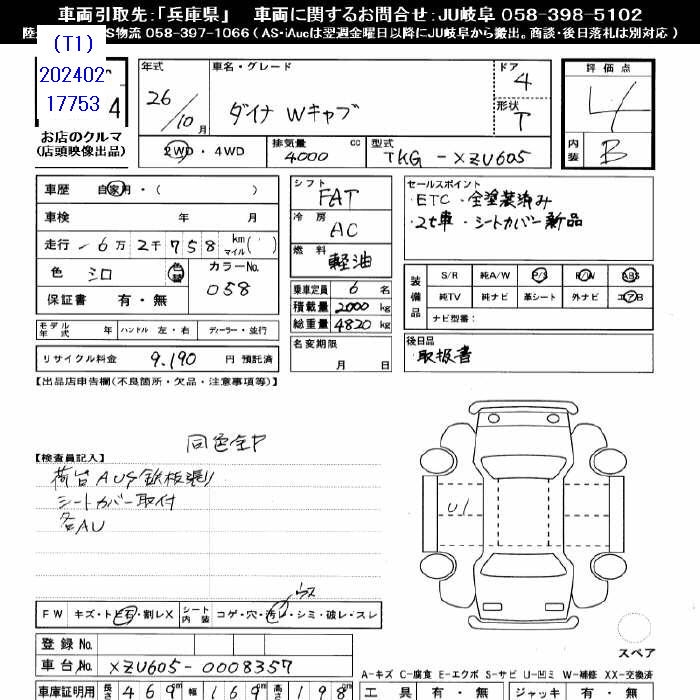 車両引取先：「兵庫県」　車両に関するお問合せ：JU岐阜 058-398-5102
S物流 058-397-1066（AS・iAucは翌週金曜日以降にJU岐阜から搬出。商談・後日落札は別対応）
(T1)
202402
17753
4
お店のクルマ
(店頭映像出品)
年式 車名・グレード ドア 4 評価点
26/10月 ダイナ Wキャブ 形状 T 4
2WD・4WD 排気量 4000 cc 型式 TKG-XZU605 内装 B
車歴 自家用・( )
車検 年 月
走行 6万2千758 km マイル( )
色 シロ 色替 カラーNo. 058
保証書 有・無
モデル年式 年 ハンドル 左・右 ディーラー・並行
リサイクル料金 9,190 円 預託済
シフト FAT
冷房 AC
燃料 軽油
乗車定員 6 名
積載量 2000 kg
総重量 4820 kg
名変期限 月 日
セールスポイント
・ETC・全塗装済み
・2t車・シートカバー新品
装備品 S/R 純A/W P/S P/W ABS
純TV 純ナビ 革シート 外ナビ エアB
ナビ型番：
後日品
取扱書
【出品店申告欄(不良箇所・欠品・注意事項等)】
同色全P
【検査員記入】
荷台AUS鉄板張り
シートカバー取付
各AU
U1
FW キズ・トビ石・割レX シート内装 コゲ・穴・汚レ・シミ・破レ・スレ
ウス
登録No.
車台No. XZU605-0008357
車庫証明用 長さ 469 cm 幅 169 cm 高さ 198 cm
スペア
A=キズ C=腐食 E=エクボ S=サビ U=凹ミ W=補修 XX=交換済
工具 有・無 ジャッキ 有・無